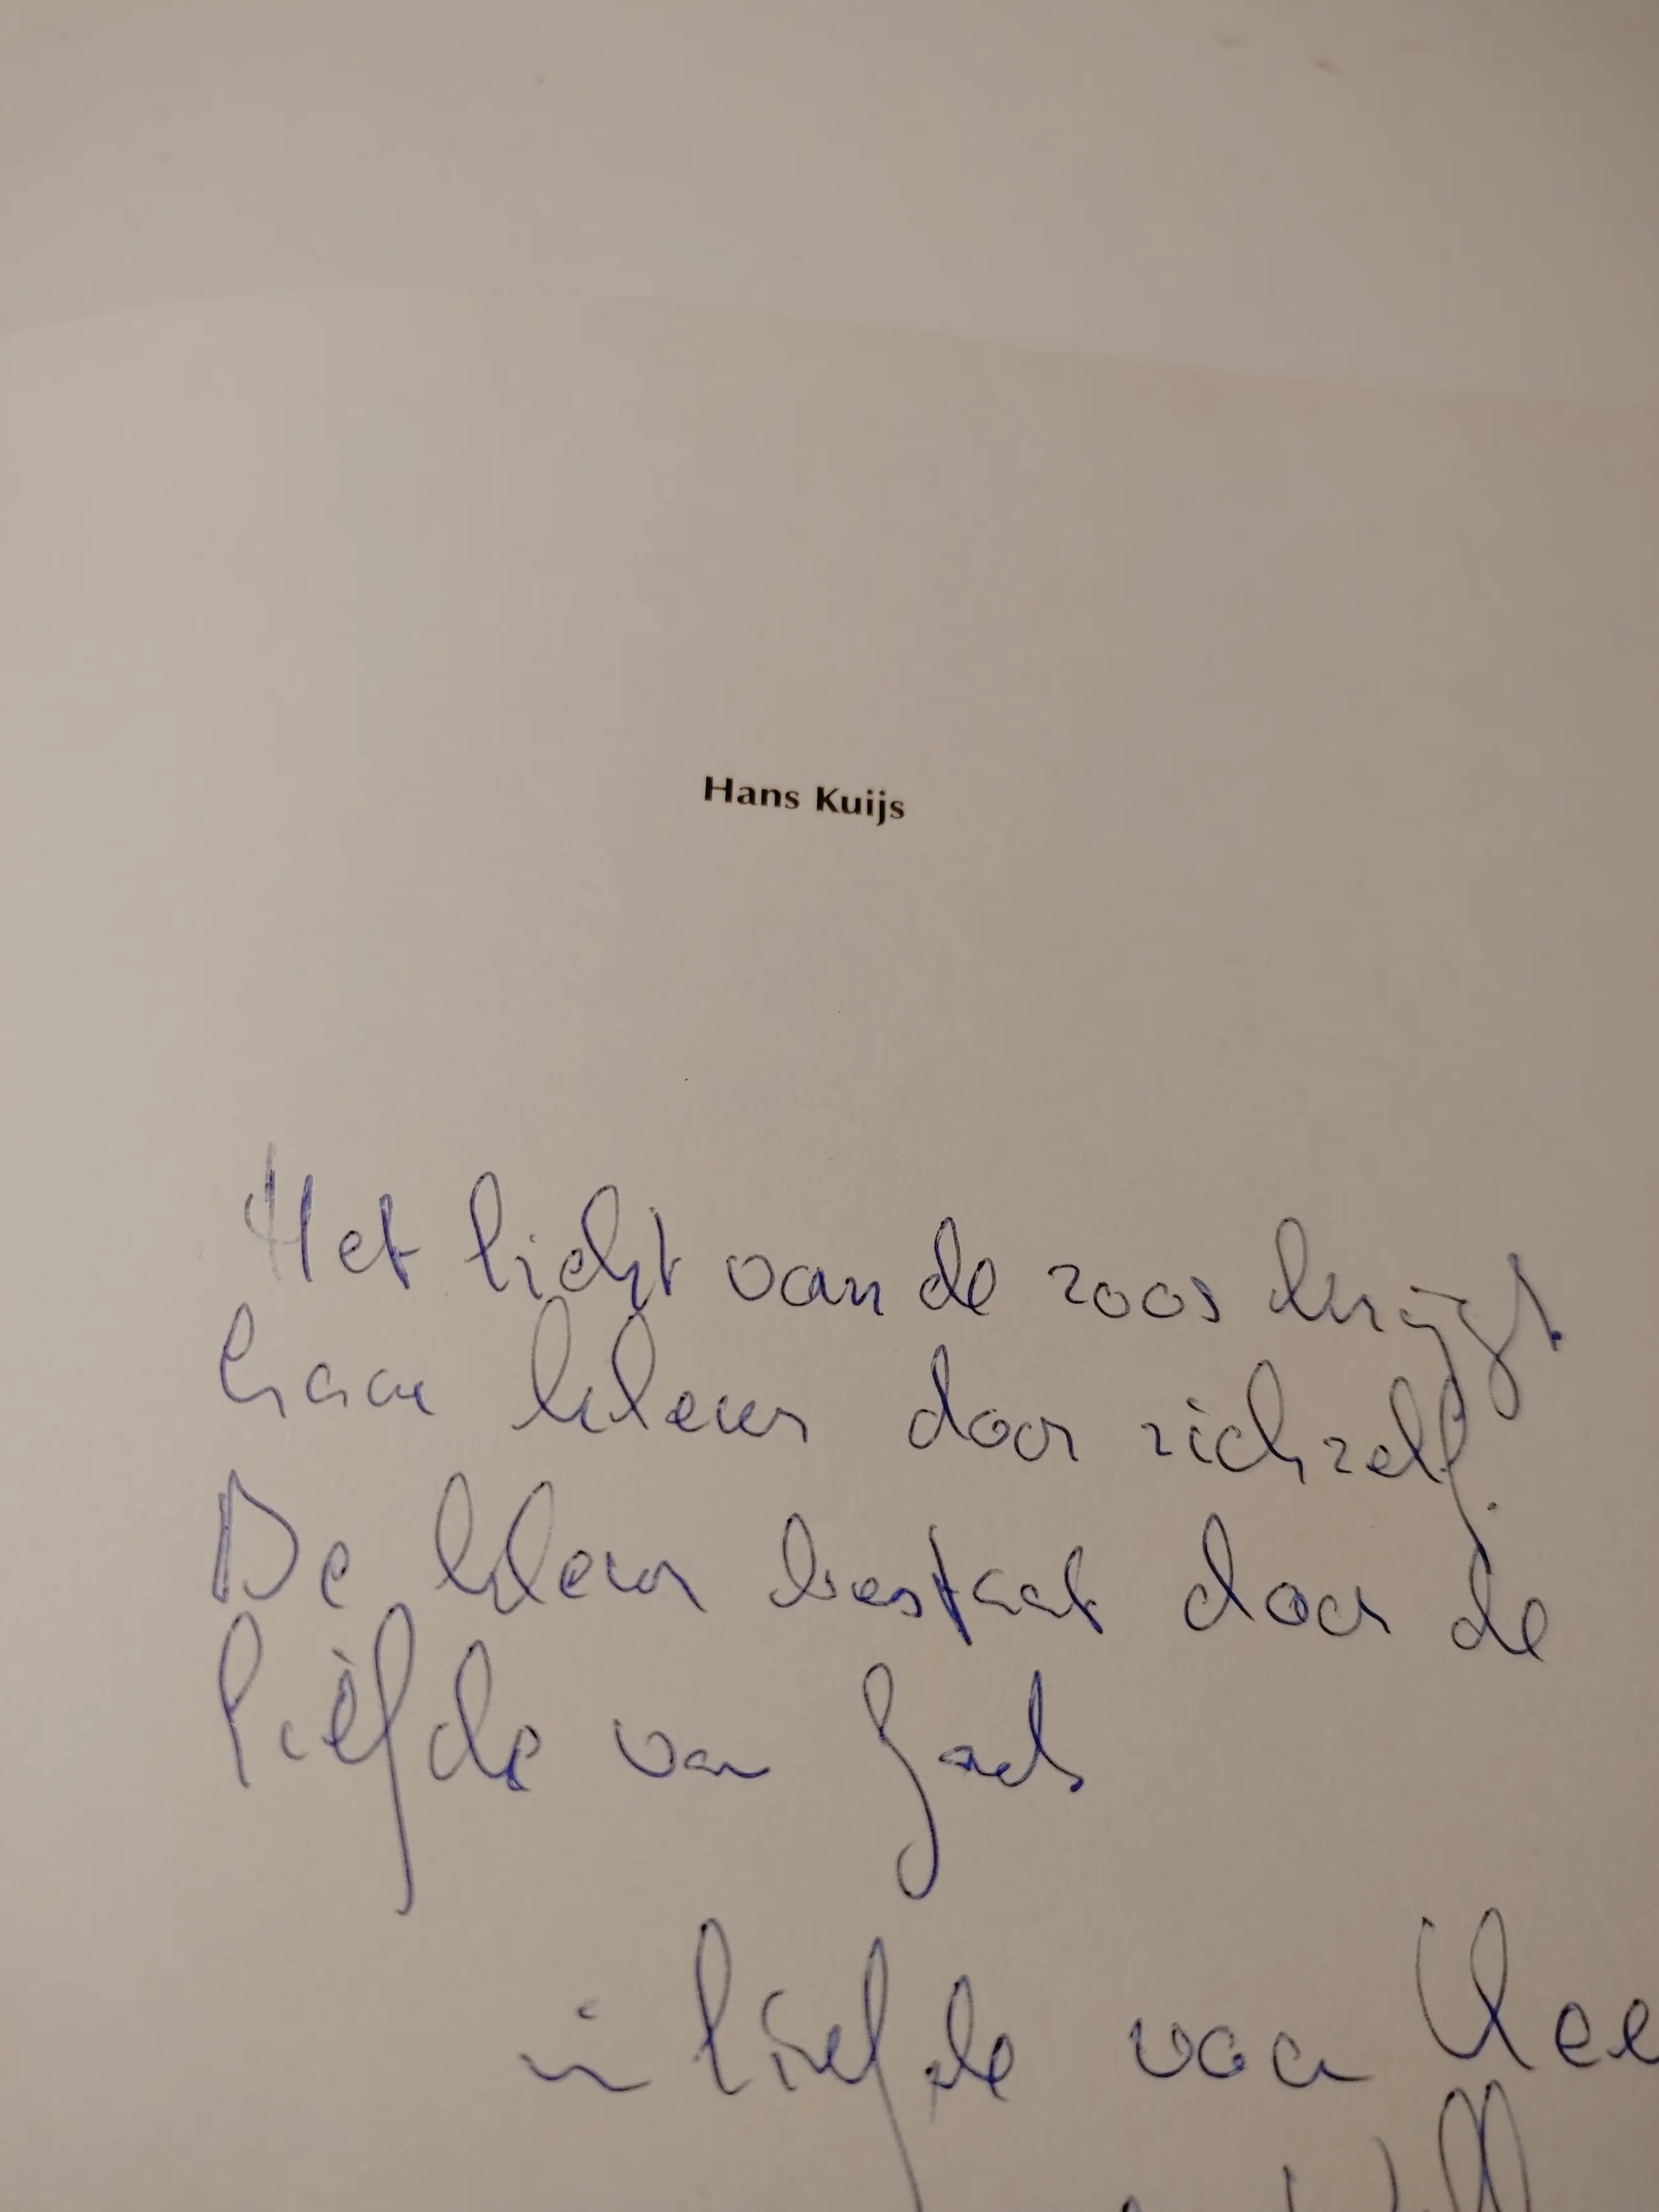 Hans Kuijs
Het licht van de roos krijgt
haar kleur door zichzelf.
De kleur bestaat door de
liefde van Gods
in liefde voor